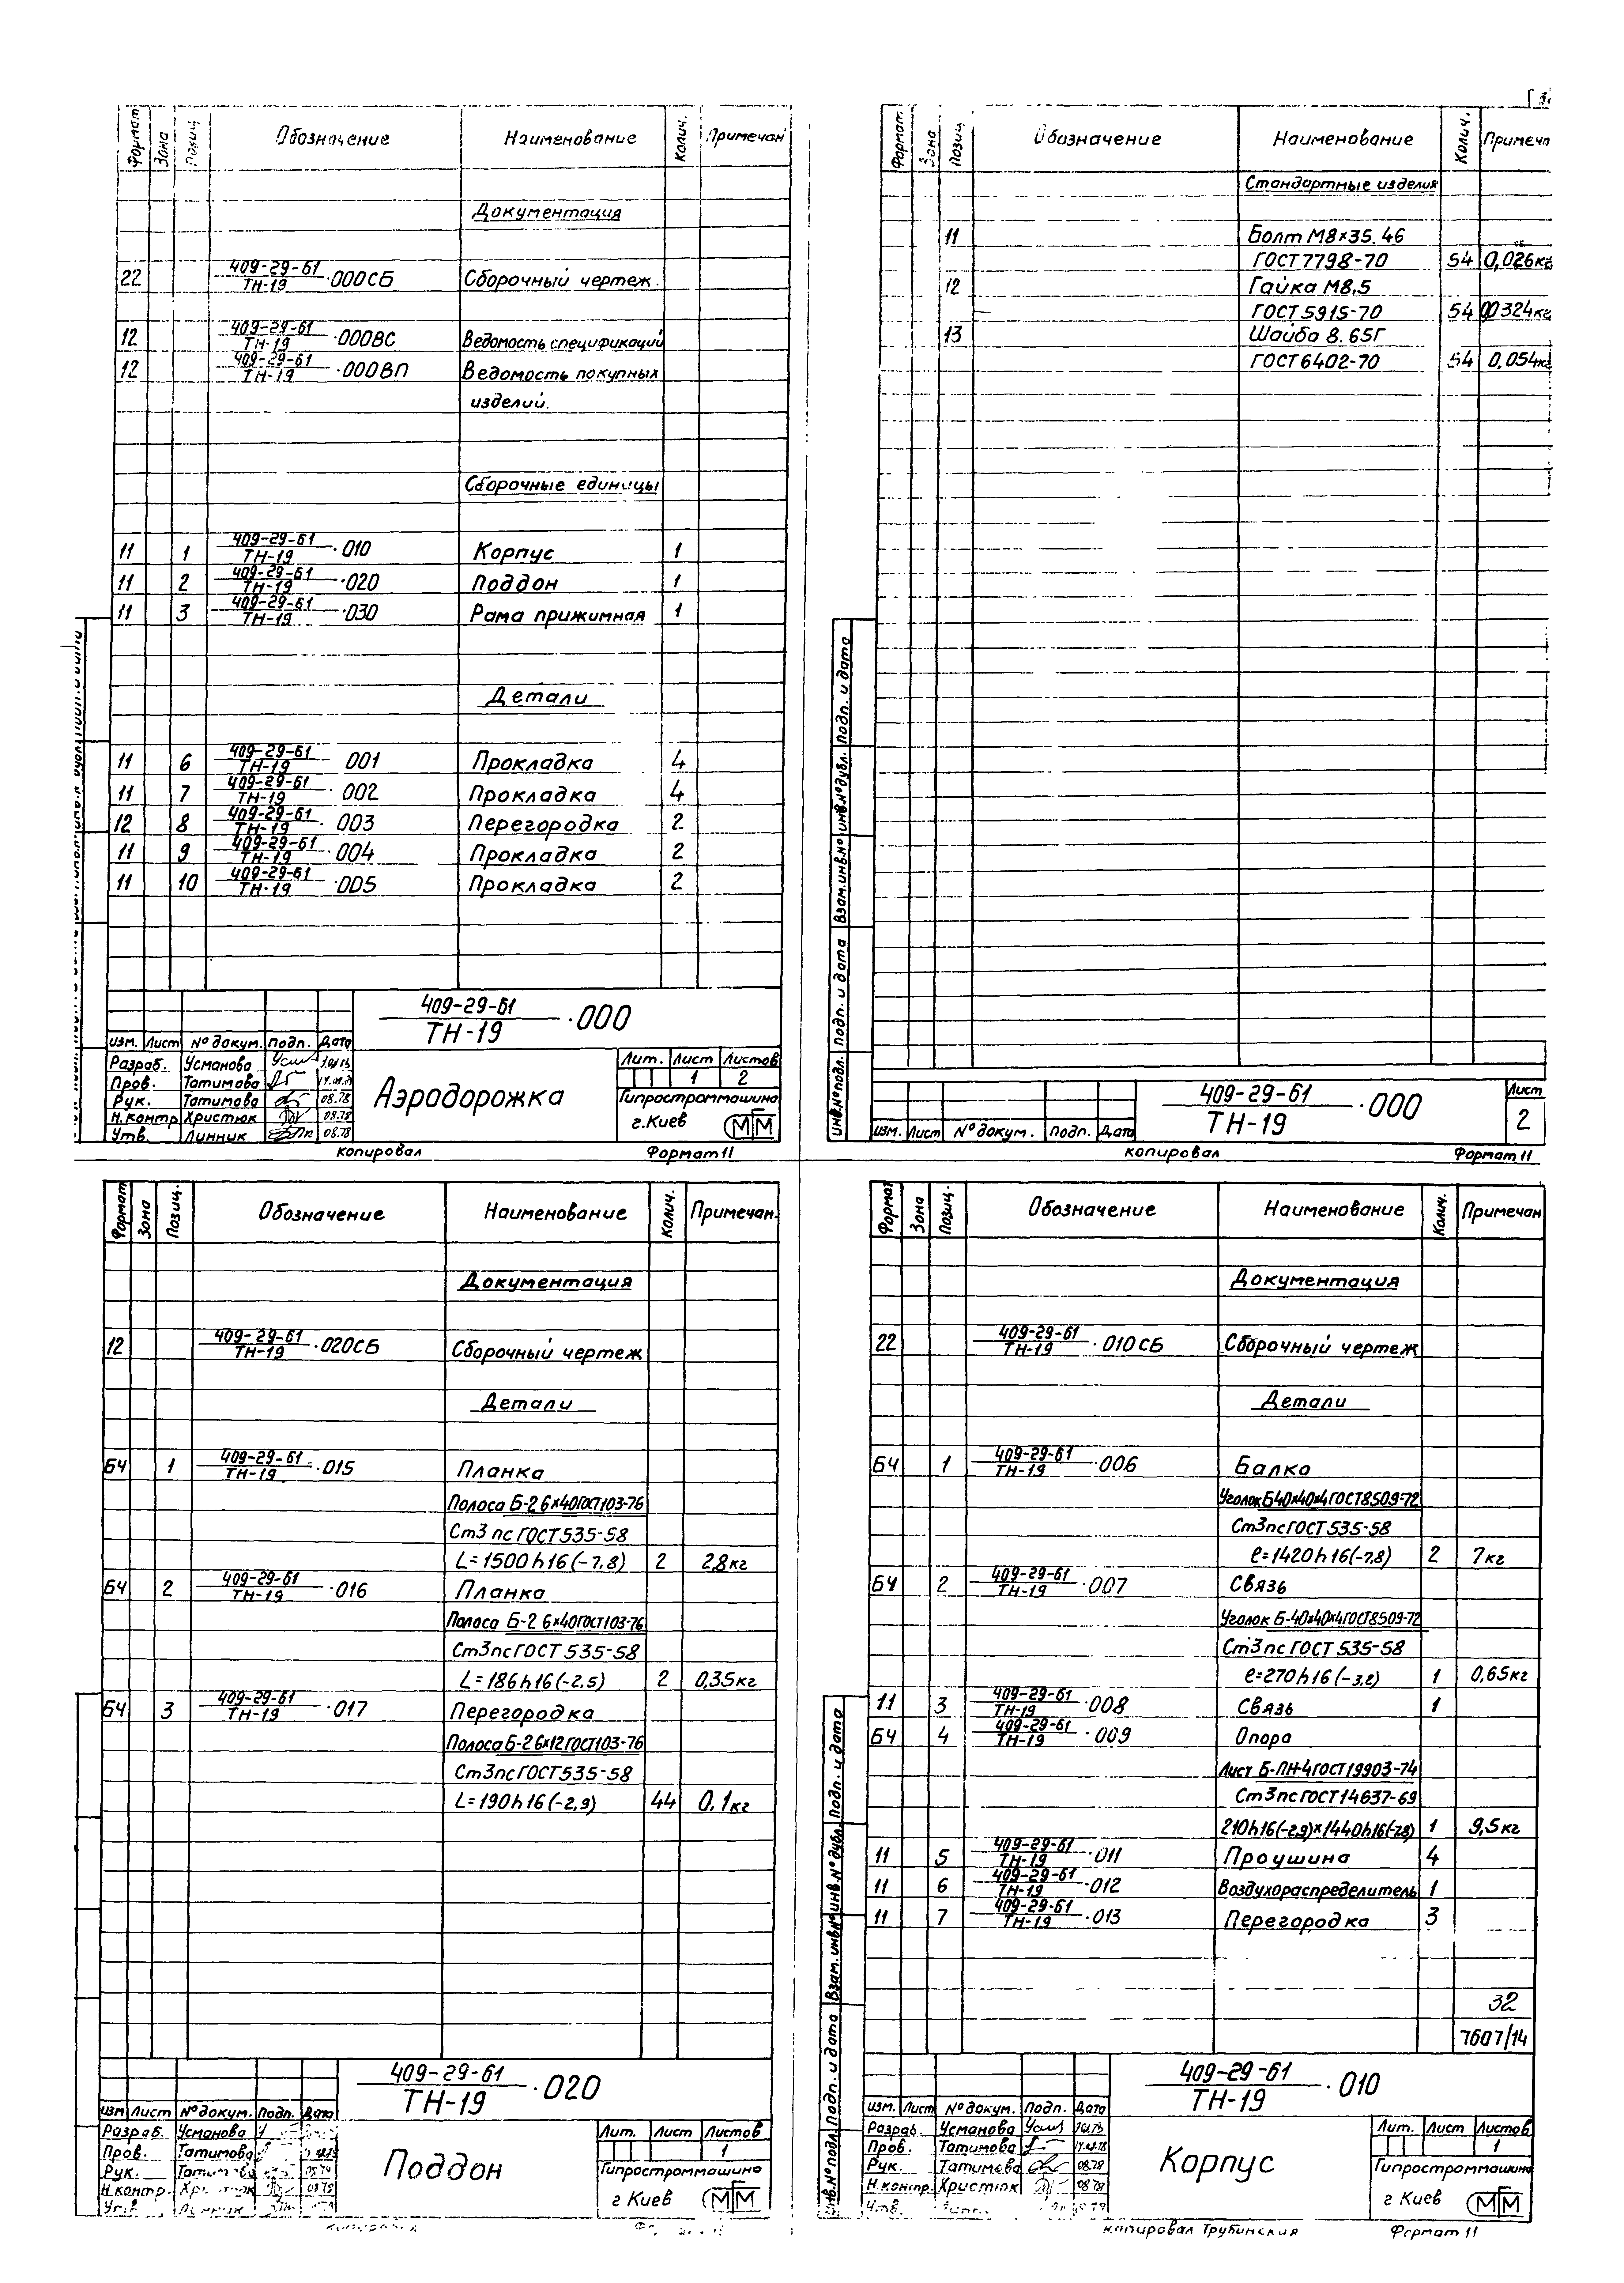 Формат Зона Позиц. Обозначение Наименование Колич. Примечан
Документация
22 409-29-61/ТН-19 ·000СБ Сборочный чертеж.
12 409-29-61/ТН-19 ·000ВС Ведомость спецификаций
12 409-29-61/ТН-19 ·000ВП Ведомость покупных
изделий.
Сборочные единицы
11 1 409-29-61/ТН-19 ·010 Корпус 1
11 2 409-29-61/ТН-19 ·020 Поддон 1
11 3 409-29-61/ТН-19 ·030 Рама прижимная 1
Детали
11 6 409-29-61/ТН-19 001 Прокладка 4
11 7 409-29-61/ТН-19 ·002 Прокладка 4
12 8 409-29-61/ТН-19 ·003 Перегородка 2
11 9 409-29-61/ТН-19 ·004 Прокладка 2
11 10 409-29-61/ТН-19 ·005 Прокладка 2
409-29-61/ТН-19 ·000
изм. Лист № докум. Подп. Дата
Разраб. Усманова
Пров. Татимова
Рук. Татимова 08.78
Н.контр Христюк 08.78
Утв. Линник 08.78
Аэродорожка
Лит. Лист Листов
1 2
Гипростроммашина
г.Киев
МГМ
копировал Формат 11
Формат Зона Позиц. Обозначение Наименование Колич. Примечан
Стандартные изделия
11 Болт М8×35.46
ГОСТ 7798-70 54 0,026кг
12 Гайка М8.5
ГОСТ 5915-70 54
13 Шайба 8.65Г
ГОСТ 6402-70 54 0.054кг
инв.№ подл. Подп. и дата Взам.инв.№ инв.№ дубл. Подп. и дата
изм. Лист № докум. Подп. Дата
409-29-61/ТН-19 ·000
Лист
2
копировал Формат 11
Формат Зона Позиц. Обозначение Наименование Колич. Примечан.
Документация
12 409-29-61/ТН-19 ·020СБ Сборочный чертеж
Детали
БЧ 1 409-29-61/ТН-19 ·015 Планка
Полоса Б-2 6×40 ГОСТ 103-76
Ст3 пс ГОСТ 535-58
L=1500h16(-7,8) 2 2,8кг
БЧ 2 409-29-61/ТН-19 ·016 Планка
Полоса Б-2 6×40 ГОСТ 103-76
Ст3 пс ГОСТ 535-58
L=186h16(-2,5) 2 0,35кг
БЧ 3 409-29-61/ТН-19 ·017 Перегородка
Полоса Б-2 6×12 ГОСТ 103-76
Ст3 пс ГОСТ 535-58
L=190h16(-2,9) 44 0,1кг
409-29-61/ТН-19 ·020
изм Лист № докум. Подп. Дата
Разраб. Усманова
Пров. Татимова
Рук. Татимова
Н.контр. Христюк
Утв. Линник
Поддон
Лит. Лист Листов
1
Гипростроммашина
г Киев
МГМ
Формат Зона Позиц. Обозначение Наименование Колич. Примечан
Документация
22 409-29-61/ТН-19 ·010СБ Сборочный чертеж
Детали
БЧ 1 409-29-61/ТН-19 ·006 Балка
Уголок Б 40×40×4 ГОСТ 8509-72
Ст3 пс ГОСТ 535-58
ℓ=1420h16(-7,8) 2 7кг
БЧ 2 409-29-61/ТН-19 ·007 Связь
Уголок Б-40×40×4 ГОСТ 8509-72
Ст3 пс ГОСТ 535-58
ℓ=270h16(-3,2) 1 0,65кг
11 3 409-29-61/ТН-19 ·008 Связь 1
БЧ 4 409-29-61/ТН-19 ·009 Опора
Лист Б-ПН-4 ГОСТ 19903-74
Ст3 пс ГОСТ 14637-69
210h16(-2,9)×1440h16(-7,8) 1 9,5кг
11 5 409-29-61/ТН-19 ·011 Проушина 4
11 6 409-29-61/ТН-19 ·012 Воздухораспределитель 1
11 7 409-29-61/ТН-19 ·013 Перегородка 3
32
7607/14
Инв.№ подл. Подп. и дата Взам.инв.№ инв.№ дубл. Подп. и дата
409-29-61/ТН-19 ·010
изм. Лист № докум. Подп. Дата
Разраб. Усманова
Пров. Татимова
Рук. Татимова 08.78
Н.контр. Христюк 08.78
Утв.
Корпус
Лит. Лист Листов
1
Гипростроммашина
г Киев
МГМ
копировал Трубинская Формат 11